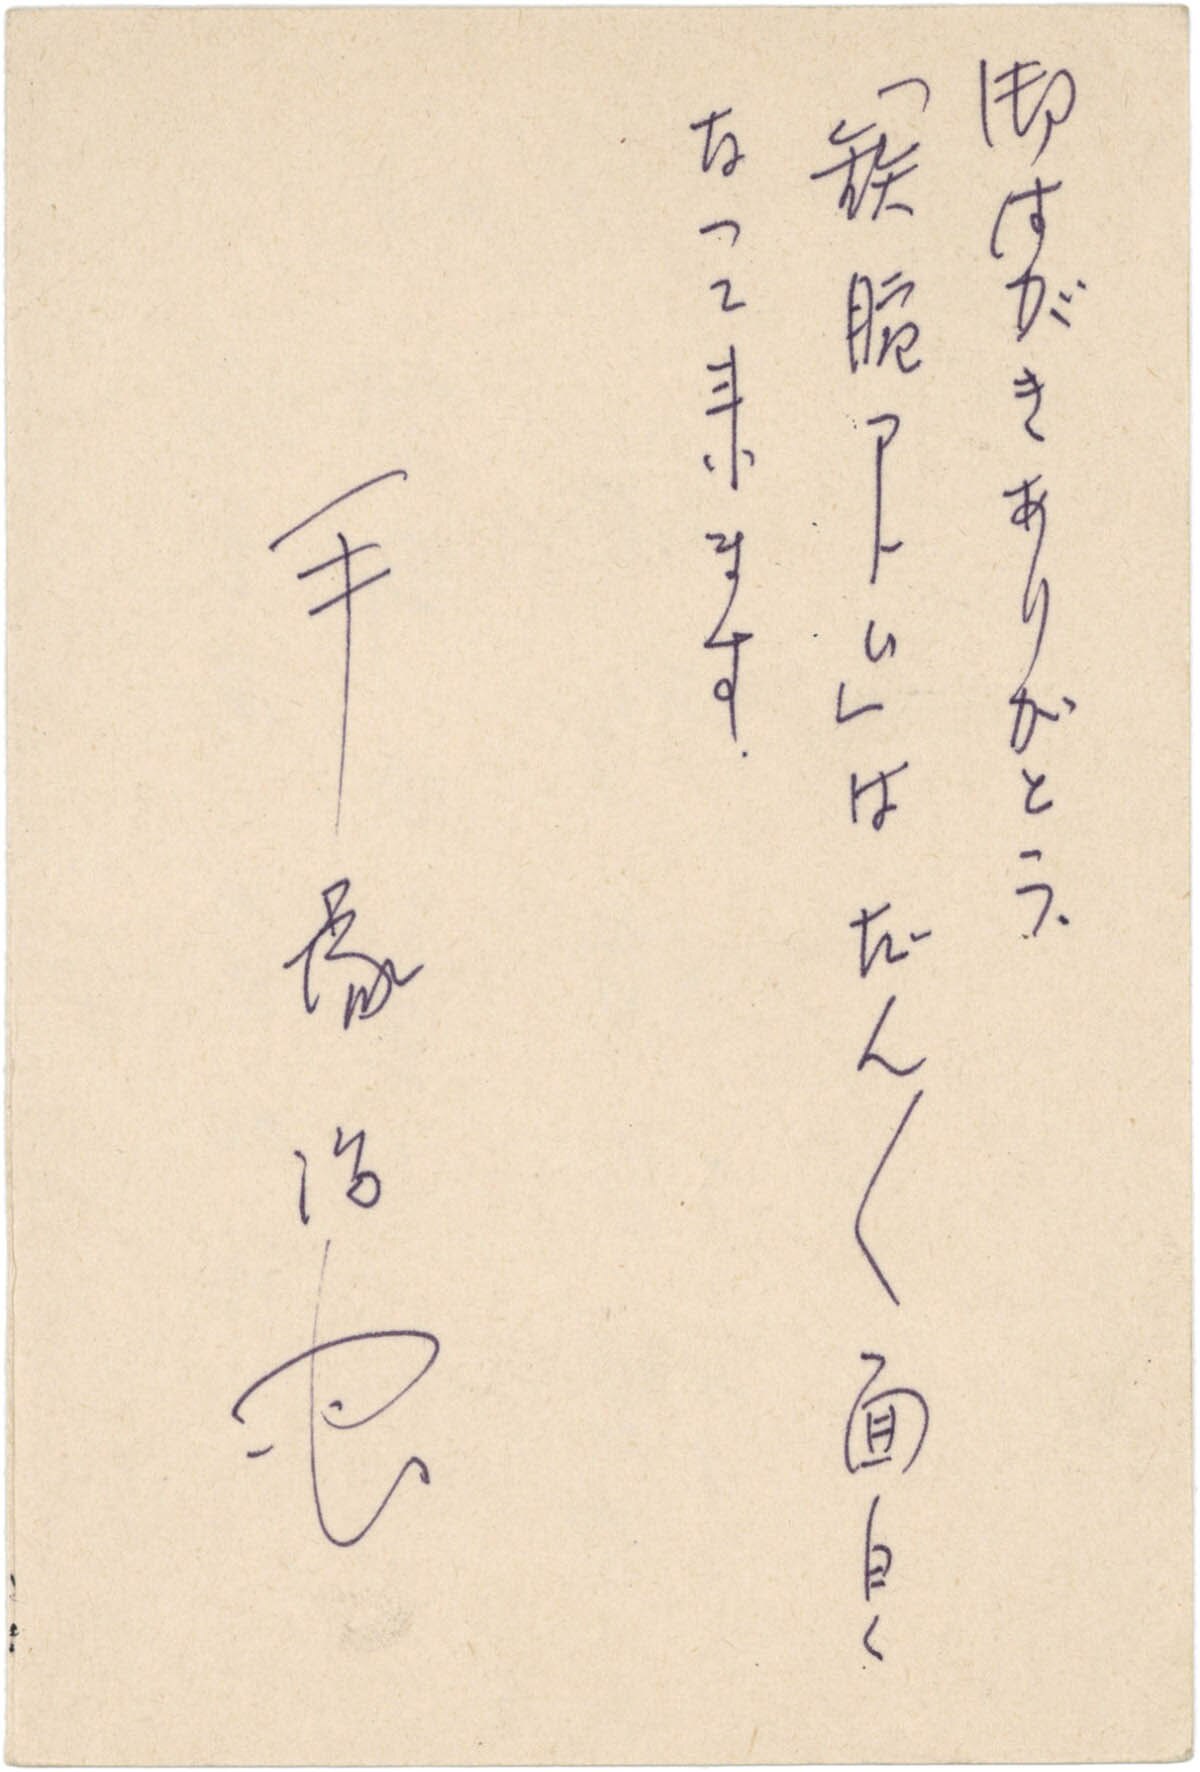 御はがきありがとう.
「鉄腕アトム」はだん〱面白く
なって来ます.
手塚治虫